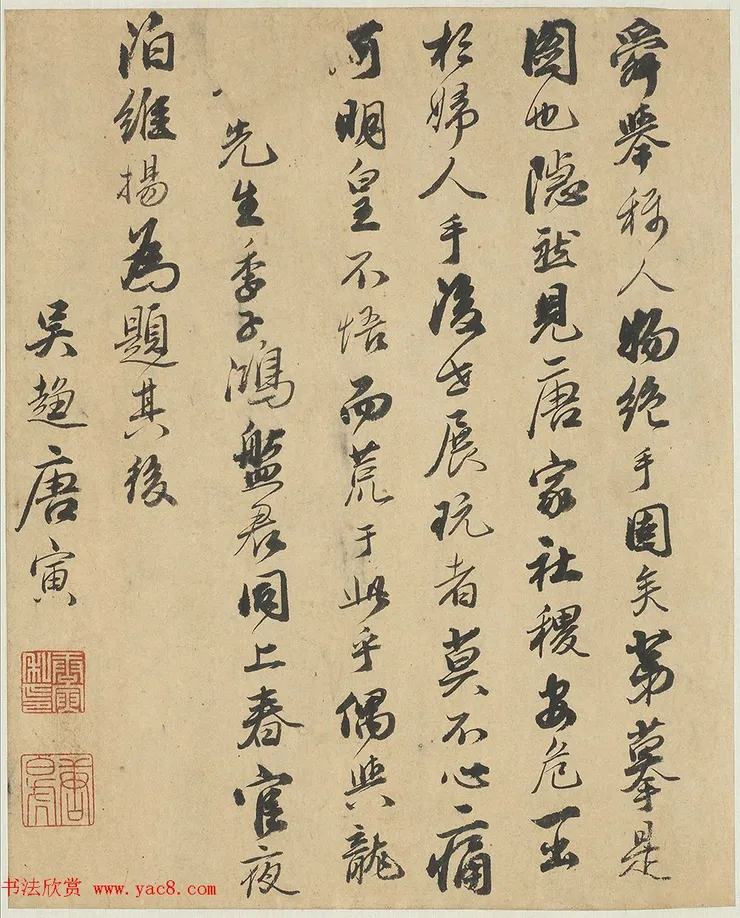 舜舉稱人物絕手固矣第摹是
圖也隱然見唐家社稷安危出
於婦人手後世展玩者莫不心痛
何明皇不悟而荒于此乎偶與龍
先生季子鴻盤君同上春官夜
泊維揚為題其後
吳趨唐寅
唐寅私印
书法欣赏 www.yac8.com